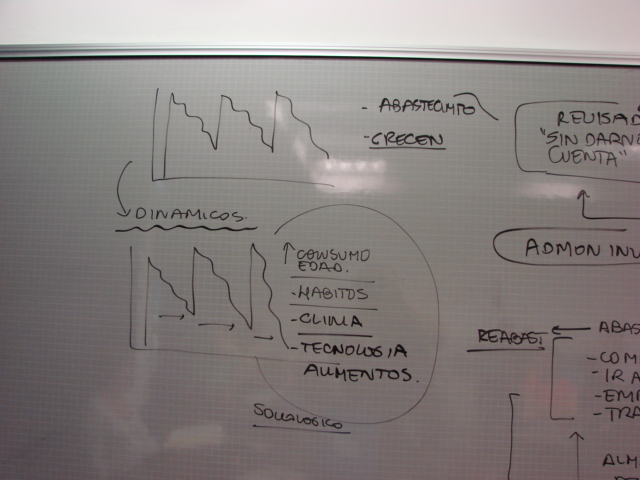 - ABASTECIMTO
- CRECEN
REVISAD
"SIN DARN
CUENTA"
DINAMICOS.
ADMON INV
CONSUMO
EDAD.
- HABITOS
- CLIMA
- TECNOLOGIA
ALIMENTOS.
REABAST
ABAS
- COM
- IR A
- EMP
- TRA
ALM